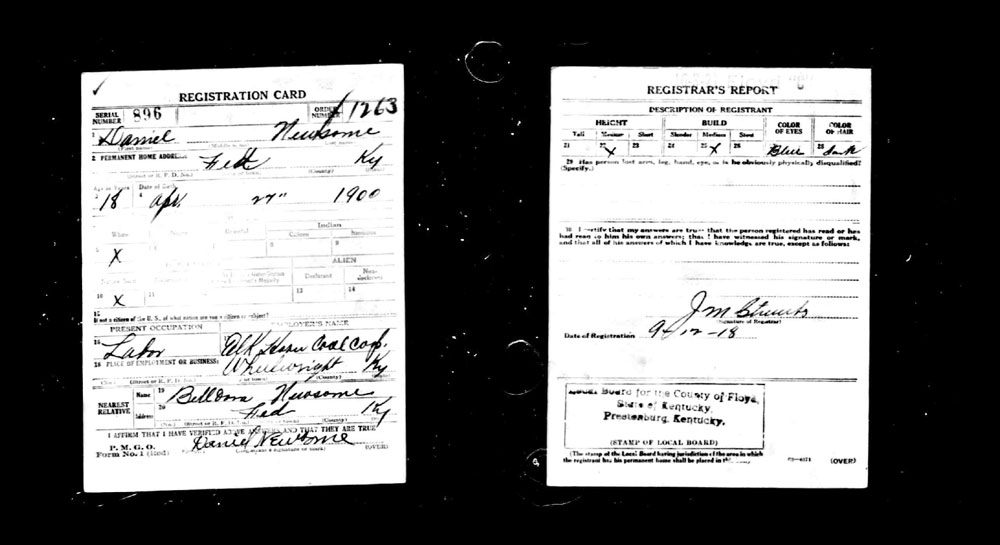 REGISTRATION CARD
SERIAL NUMBER 896 ORDER NUMBER 1263
1 Daniel Newsome
2 PERMANENT HOME ADDRESS: Fed Ky
Age in Years Date of Birth
3 18 4 Apr. 27" 1900
White Indian
Citizen
X
8 9
ALIEN
Declarant Non-declarant
10 X 11 13 14
15
If not a citizen of the U. S., of what nation are you a citizen or subject?
PRESENT OCCUPATION EMPLOYER'S NAME
16 Labor Elk Horn Coal Corp.
18 PLACE OF EMPLOYMENT OR BUSINESS: Wheelwright Ky
(No.) (Street or R. F. D. No.) (County)
NEAREST RELATIVE Name 19 Newsome
Address 20 Fed Ky
(No.) (Street or R. F. D. No.)
I AFFIRM THAT I HAVE VERIFIED ABOVE ANSWERS AND THAT THEY ARE TRUE
P. M. G. O.
Form No. 1 (Red) Daniel Newsome (OVER)
REGISTRAR'S REPORT
DESCRIPTION OF REGISTRANT
HEIGHT BUILD COLOR OF EYES COLOR OF HAIR
Tall Medium Short Slender Medium Stout
21 22 X 23 24 25 X 26 27 Blue 28 Dark
29 Has person lost arm, leg, hand, eye, or is he obviously physically disqualified?
(Specify.)
30 I certify that my answers are true; that the person registered has read or has
had read to him his own answers; that I have witnessed his signature or mark,
and that all of his answers of which I have knowledge are true, except as follows:
J M
(Signature of Registrar)
Date of Registration 9-12-18
Local Board for the County of Floyd,
State of Kentucky,
Prestonburg, Kentucky.
(STAMP OF LOCAL BOARD)
(The stamp of the Local Board having jurisdiction of the area in which
the registrant has his permanent home shall be placed in this
(OVER)